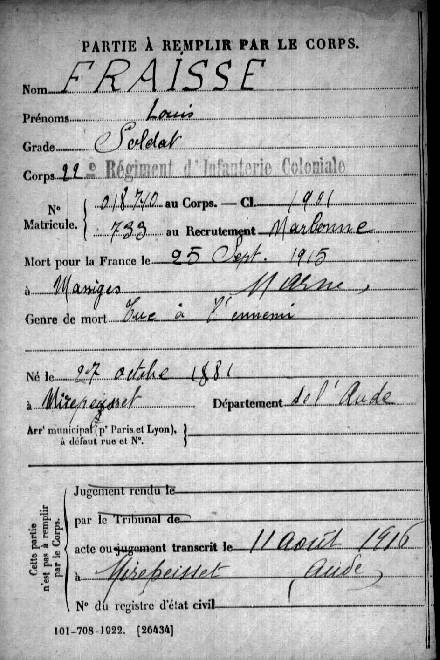 PARTIE À REMPLIR PAR LE CORPS.
Nom FRAISSE
Prénoms Louis
Grade Soldat
Corps 22e Régiment d'Infanterie Coloniale
N° Matricule. { 218740 au Corps. — Cl. 1901
733 au Recrutement Narbonne
Mort pour la France le 25 Sept. 1915
à Massiges Marne,
Genre de mort Tué à l'ennemi
Né le 27 octobre 1881
à Mirepeisset Département de l'Aude
Arrt municipal (pr Paris et Lyon),
à défaut rue et N°.
Cette partie n'est pas à remplir par le Corps.
Jugement rendu le
par le Tribunal de
acte ou jugement transcrit le 11 août 1916
à Mirepeisset (Aude)
N° du registre d'état civil
101-708-1922. [26434]